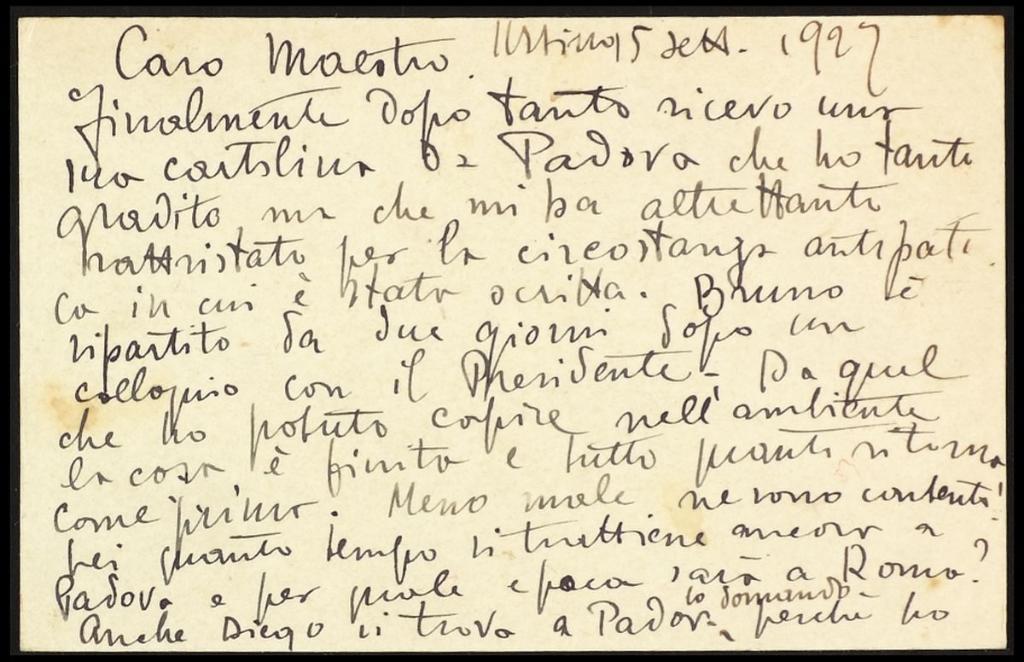 Caro Maestro. Urbino, 5 sett. 1927
Finalmente dopo tanto ricevo una
sua cartolina da Padova che ho tanto
gradito ma che mi ha altrettanto
rattristato per la circostanza antipati
ca in cui è stata scritta. Bruno è
ripartito da due giorni dopo un
colloquio con il Presidente - Da quel
che ho potuto capire nell'ambiente
la cosa è finita e tutto quanto ritorna
come prima. Meno male ne sono contenta!
Lei quanto tempo si trattiene ancora a
Padova e per quale epoca sarà a Roma?
lo domando
Anche Diego si trova a Padova, perchè ho